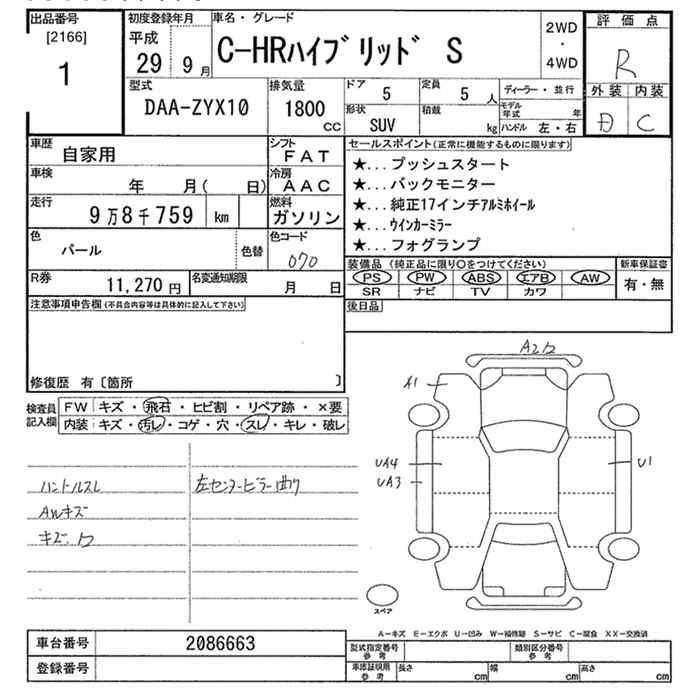 出品番号
[2166]
1
初度登録年月
平成
29 9月
車名・グレード
C-HRハイブリッド S
2WD
・
4WD
評価点
R
外装 内装
D C
型式
DAA-ZYX10
排気量
1800
cc
ドア 5
定員 5 人
形状
SUV
積載
kg
ディーラー・並行
モデル年式 年
ハンドル 左・右
車歴
自家用
シフト
FAT
車検
年 月( 日)
冷房
AAC
走行
9万8千759 km
燃料
ガソリン
色
パール
色替
色コード
070
R券
11,270円
名変通知期限
月 日
セールスポイント(正常に機能するものに限ります)
★...プッシュスタート
★...バックモニター
★...純正17インチアルミホイール
★...ウインカーミラー
★...フォグランプ
装備品(純正品に限り○をつけてください)
PS PW ABS エアB AW
SR ナビ TV カワ
新車保証書
有・無
後日品
注意事項申告欄(不具合内容等は具体的に記入して下さい)
修復歴 有〔箇所 〕
検査員記入欄
FW キズ・飛石・ヒビ割・リペア跡・×要
内装 キズ・汚レ・コゲ・穴・スレ・キレ・破レ
ハンドルスレ
AWキズ
キズ・ワ
左センターピラー曲り
A2ワ
A1
UA4
UA3
U1
スペア
A-キズ E-エクボ U-凹み W-補修跡 S-サビ C-腐食 XX-交換済
車台番号
2086663
登録番号
型式指定番号
参考
類別区分番号
参考
車庫証明用
参考
長さ cm
幅 cm
高さ cm